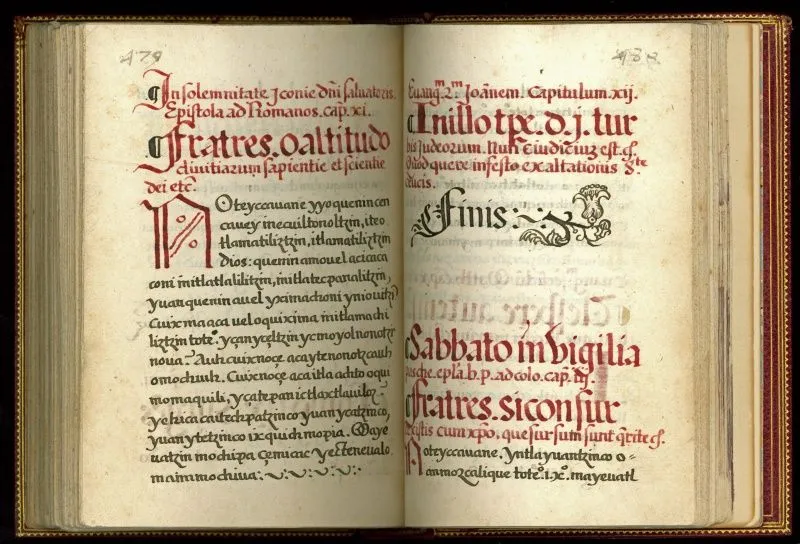 479
¶ In solemnitate Iconie dñi saluatoris.
Epistola ad Romanos. cap. xi.
¶ Fratres. O altitudo
diuitiarum sapientie et scientie
dei etc̃.
Noteyccauane yyoquenin cen
cauey inecuiltonoltzin, iteo
tlamatiliztzin, itlamatiliztzin
dios: quenin amouel acicaca
coni initlatlalilitzin, initlatecpanalitzin,
yuan quenin auel yximachoni yniouitzi
Cuix ma aca uel oquixima initlamachi
liztzin toteº. yçan yçeltzin ycmoyolnonotz
noua? Auh cuixnoçe aca ytenonotzcauh
omochiuh. Cuixnoçe aca itla achto oqui
momaquili, yçatepan ictlaxtlauiloz.
yehica ca itechpatzinco yuan ycatzinco,
yuan ytetzinco ixquich mopia. Maye
uatzin mochipa çemicac yectenevalo
ma in mochiua:
480
Euangm. 2m. Ioãnem. Capitulum. xij.
¶ In illo tpẽ. d. j. tur
bis Iudeorum. Nunc̃ iudiciuz est. &.
Quod quere in festo exaltationis Ste
crucis.
Finis
¶ Sabbato in vigilia
pasche. epl'a. b. p. ad colo. cap.
¶ Fratres. si consur
rexistis cum xp̃o, que sursum sunt q̃rite &.
Noteyccauane. Yntla yuantzinco o=
anmozcalique toteº. i. xº. ma yeuatl